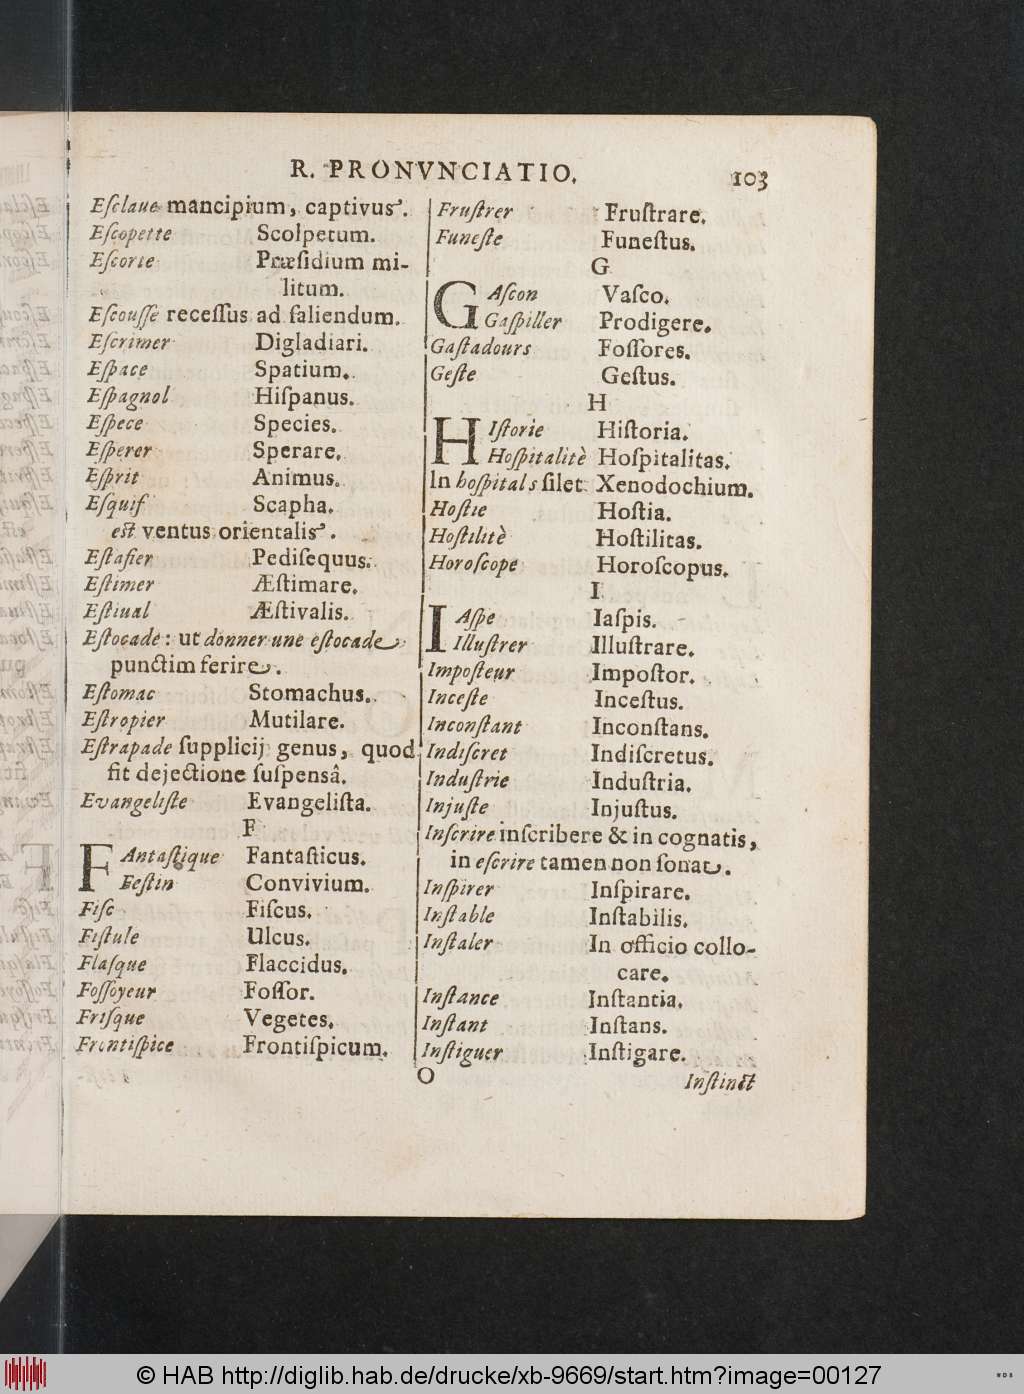 R. PRONVNCIATIO.
103
Eſclaue mancipium, captivus.
Eſcopette Scolpetum.
Eſcorte Præſidium mi-
litum.
Eſcouſſe receſſus ad ſaliendum.
Eſcrimer Digladiari.
Eſpace Spatium.
Eſpagnol Hiſpanus.
Eſpece Species.
Eſperer Sperare.
Eſprit Animus.
Eſquif Scapha.
eſt ventus orientalis.
Eſtafier Pediſequus.
Eſtimer Æſtimare.
Eſtiual Æſtivalis.
Eſtocade: ut donner une eſtocade
punctim ferire.
Eſtomac Stomachus.
Eſtropier Mutilare.
Eſtrapade ſupplicij genus, quod
fit dejectione ſuſpensâ.
Evangeliſte Evangeliſta.
F
FAntaſtique Fantaſticus.
Feſtin Convivium.
Fiſc Fiſcus.
Fiſtule Ulcus.
Flaſque Flaccidus.
Foſſoyeur Foſſor.
Friſque Vegetes.
Frontiſpice Frontiſpicum.
Fruſtrer Fruſtrare.
Funeſte Funeſtus.
G
GAſcon Vaſco.
Gaſpiller Prodigere.
Gaſtadours Foſſores.
Geſte Geſtus.
H
HIſtorie Hiſtoria.
Hoſpitalitè Hoſpitalitas.
In hoſpitals ſilet Xenodochium.
Hoſtie Hoſtia.
Hoſtilitè Hoſtilitas.
Horoſcope Horoſcopus.
I
IAſpe Iaſpis.
Illuſtrer Illuſtrare.
Impoſteur Impoſtor.
Inceſte Inceſtus.
Inconſtant Inconſtans.
Indiſcret Indiſcretus.
Induſtrie Induſtria.
Injuſte Injuſtus.
Inſcrire inſcribere & in cognatis,
in eſcrire tamen non ſonat.
Inſpirer Inſpirare.
Inſtable Inſtabilis.
Inſtaler In officio collo-
care.
Inſtance Inſtantia.
Inſtant Inſtans.
Inſtiguer Inſtigare.
O
Inſtinct
© HAB http://diglib.hab.de/drucke/xb-9669/start.htm?image=00127